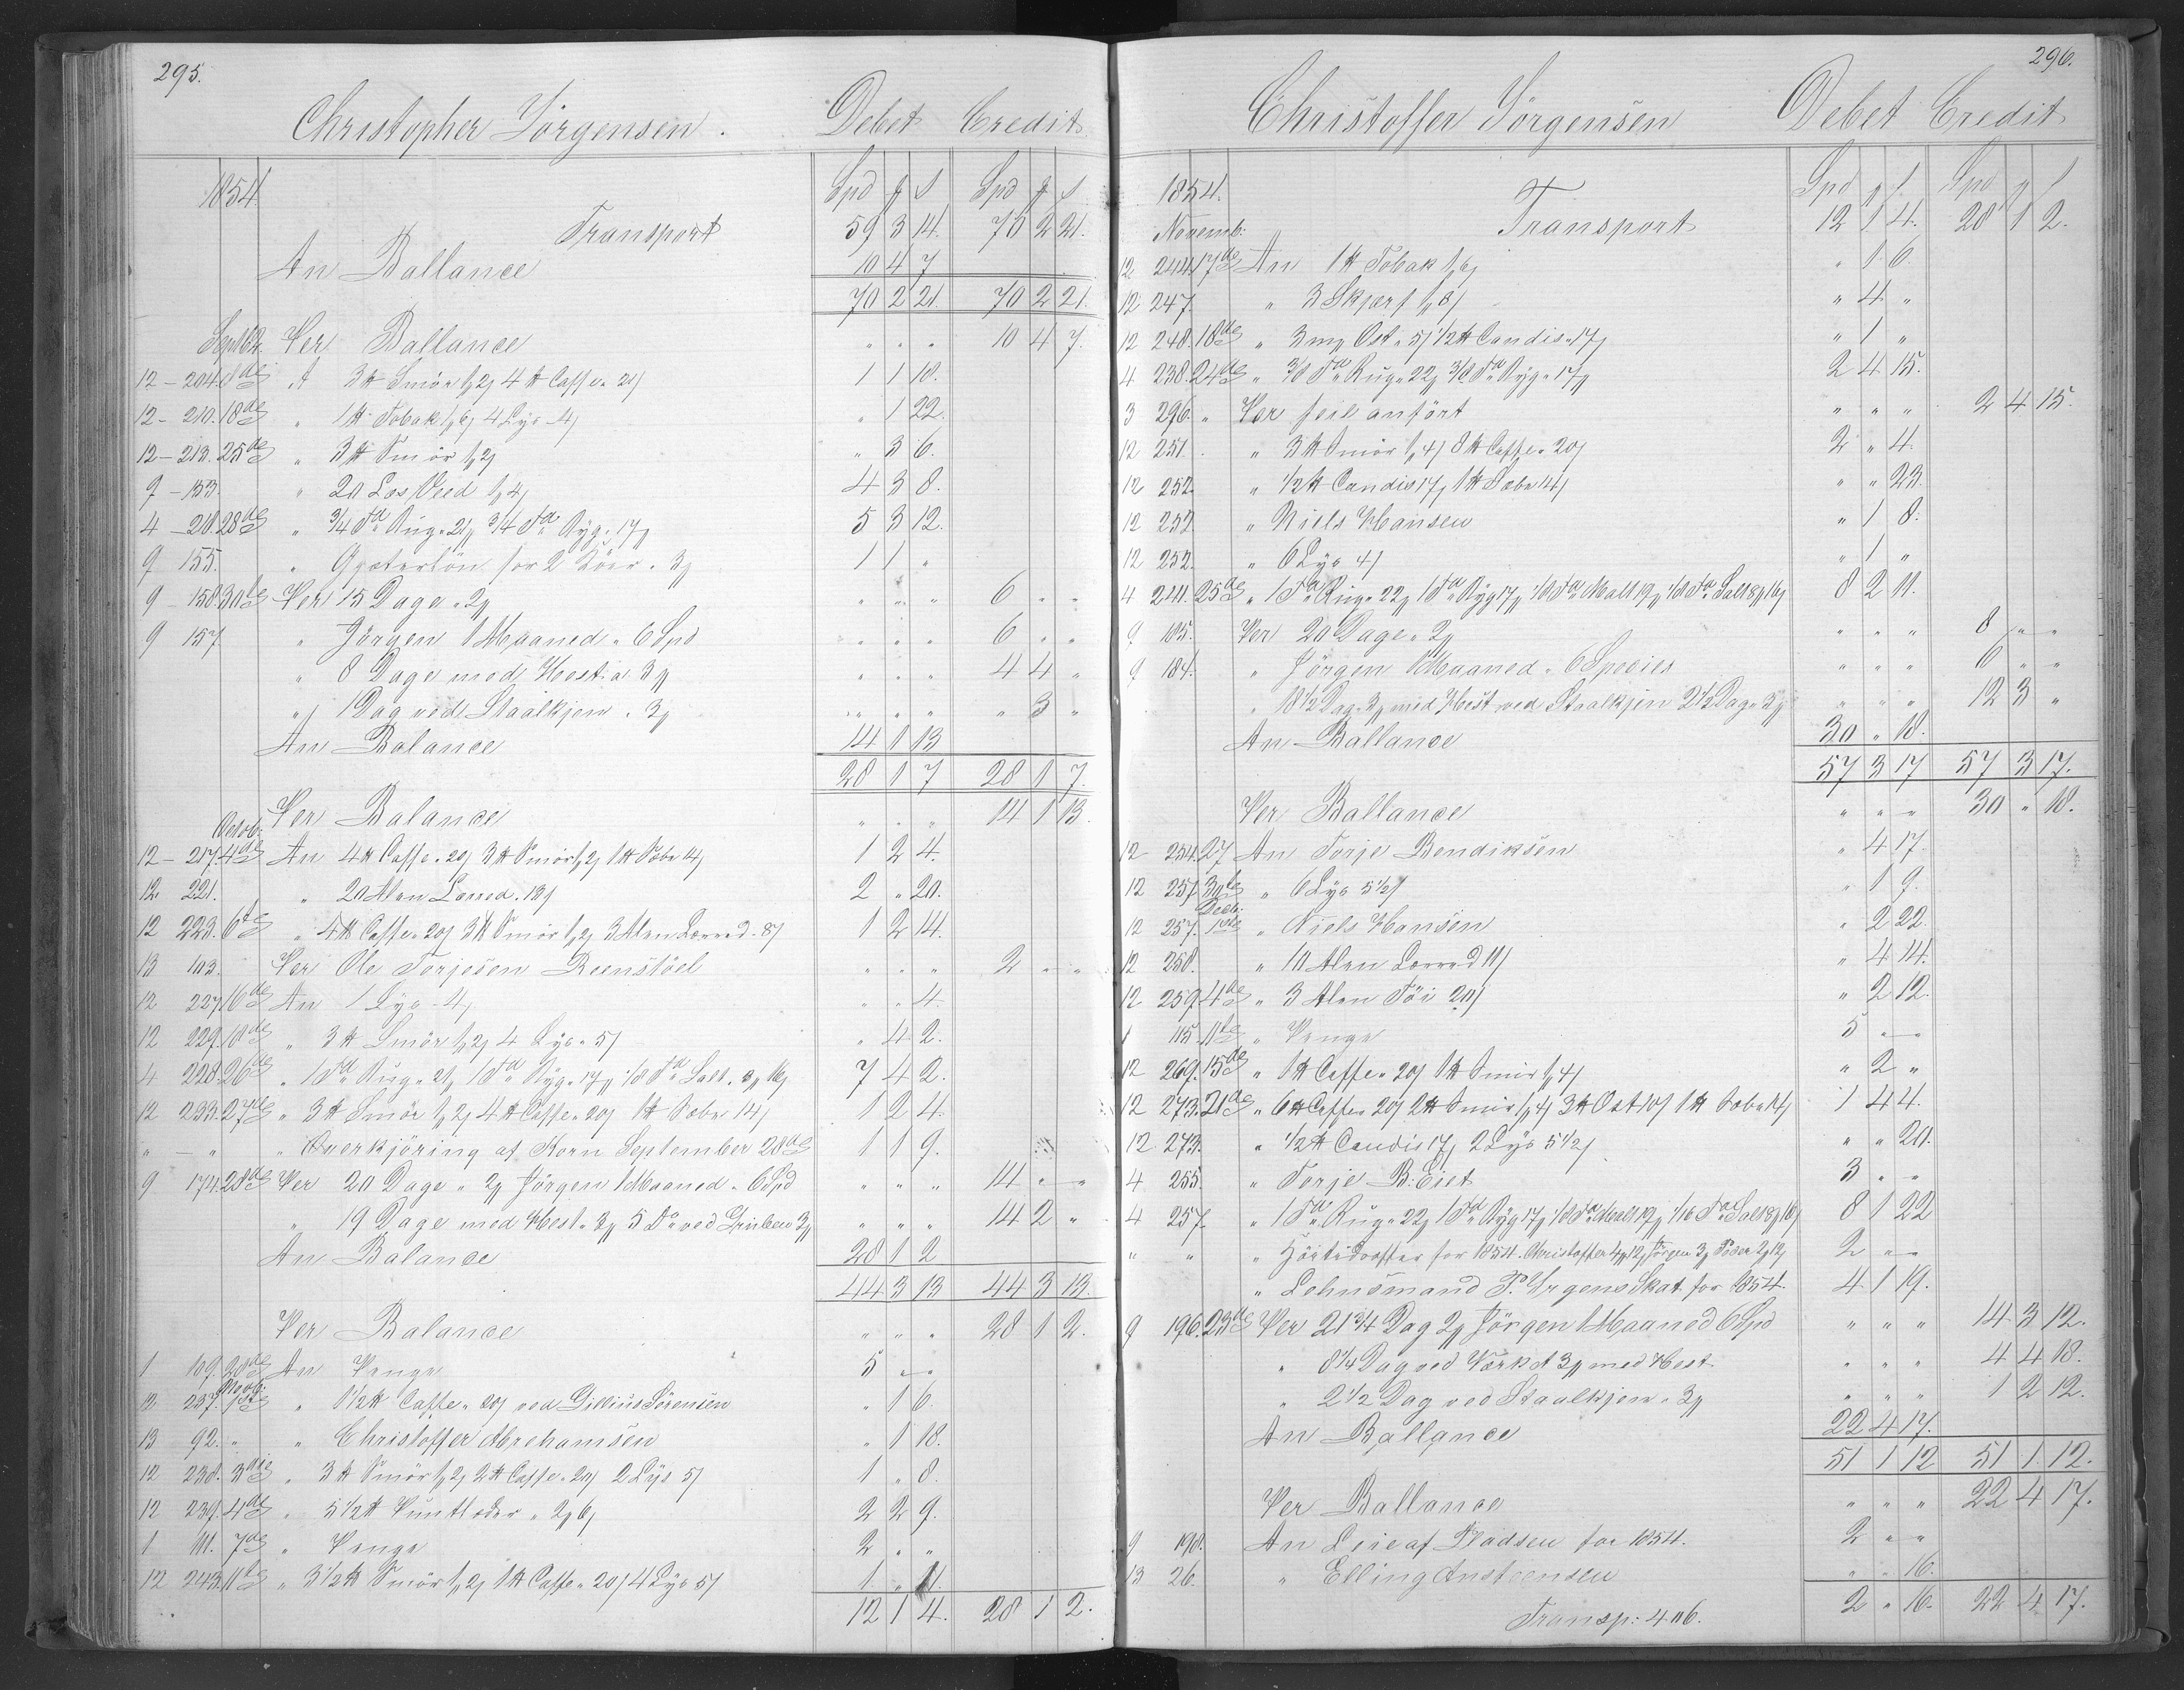 295.
Christopher Jörgensen. Debet Credit
1854. Spd ȷ s Spd ȷ s
Transport 59 3 14. 70 2 21.
An Ballance 10 4 7
70 2 21. 70 2 21.
Septbr. Per Ballance " " " 10 4 7.
12 - 204. 8de A 3 ℔ Smör 4 ℔ Caffe " 20/ 1 1 10.
12 - 210. 18de " 1 ℔ Tobak 4 Lys - 4/ " 1 22.
12 - 213. 25de " 3 ℔ Smör " 3 6.
9 - 153. " 20 Las Veed 4 3 8.
4 - 218. 28de " 3/4 Td Rug " 3/4 Td Byg " 17 5 3 12.
9 155. " for 2 Köer " 3 1 1 "
9 - 158. 30te Per 15 Dage " 2 " " " 6 " "
9 157 " Jörgen 1 Maaned " 6 Spd " " " 6 " "
" 8 Dage med Hest a 3 " " " 4 4 "
" 1 Dag ved Staalkjen " 3 " " " " 3 "
An Balance 14 1 13
28 1 7 28 1 7.
Per Balance " " " 14 1 13.
Octob:
12 - 217. 4de An 4 ℔ Caffe " 20/ 3 ℔ Smör 1 ℔ Sæbe 14/ 1 2 4.
12. 221. " 20 Alen Lærred 2 " 20.
12 223. 6te " 4 ℔ Caffe " 20/ 3 ℔ Smör 3 Alen Lærred - 8/ 1 2 4.
13 103. Per Ole Torjesen Reenstöel " " " 2 " "
12 227. 16de An 1 Lys - 4/ " " 4.
12 229. 18de " 3 ℔ Smör 4 Lys " 5/ " 4 2.
4 228. 26de " 1 Td Rug " 1 Td Byg " 17 1/8 Td Salt 7 4 2.
12 233. 27de " 3 ℔ Smör 4 ℔ Caffe " 20/ 1 ℔ Sæbe 14/ 1 2 4.
" - " " Overkjöring af Korn September 28de 1 1 9.
9 174. 28de Per 20 Dage " 2 Jörgen 1 Maaned " 6 Spd " " " 14 " "
" 19 Dage med Hest " 3 5 Do ved Gruben 3 " " " 14 2 "
An Balance 28 1 2
44 3 13 44 3 13.
Per Balance " " " 28 1 2.
1 109. 28de An Penge 5 " "
Novb:
12 237. 1ste " 1 1/2 ℔ Caffe " 20/ ved Sörensen " 1 6.
13 92. " " Christoffer Abrehamsen " 1 18.
12 238. 3die " 3 ℔ Smör 2 ℔ Caffe " 20/ 2 Lys 5/ 1 " 8.
12 239. 4de " 5 1/2 ℔ Puntleder " 2 6/ 2 2 9.
1 111. 7de " Penge 2 " "
12 243. 11te " 3 1/2 ℔ Smör 1 ℔ Caffe " 20/ 4 Lys 5/ 1 " 11.
12 1 4. 28 1 2.
296.
Christoffer Jörgensen Debet Credit
1854. Spd ȷ s Spd ȷ s
Novemb: Transport 12 1 4. 28 1 2.
12 244. 17de An 1 ℔ Tobak " 1 6.
12 247. " 3 Skjerf " 4 "
12 248. 18de " 3 mrk Ost " 5/ 1/2 ℔ Candis " 17/ " 1 "
4 238. 24de " 3/8 Td Rug " 22 3/8 Td Byg " 17 2 4 15.
3 296. " Per feil anfört " " " 2 4 15.
12 251. " 3 ℔ Smör 8 ℔ Caffe " 20/ 2 " 4.
12 252. " 1/2 ℔ Candis 17/ 1 ℔ Sæbe 14/ " " 23.
12 252. " Niels Hansen " 1 8.
12 252. " 6 Lys 4/ " 1 "
4 241. 25de " 1 Td Rug " 22 1 Td Byg 17 1/8 Td Malt 1/8 Td Salt 8 2 11.
9 185. Per 20 Dage " 2 " " " 8 " "
9 184. " Jörgen 1 Maaned " 6 Species " " " 6 " "
" 18 1/2 Dag " 3 med Hest ved Staalkjen 2 1/2 Dag " 3 " " " 12 3 "
An Ballance 30 " 18.
57 3 17 57 3 17.
Per Ballance " " " 30 " 18.
12 254. 27 An Torje Bendiksen " 4 17.
12 257. 30te " 6 Lys 5 1/2/ " 1 9.
Decb:
12 257. 1ste " Niels Hansen " 2 22.
12 258. " 10 Alen Lærred 11/ " 4 14.
12 259. 4de " 3 Alen Töi 20/ " 2 12.
1 115. 11te " Penge 5 " "
12 269. 15de " 1 ℔ Caffe " 20/ 1 ℔ Smör " 2 "
12 273. 21de " 6 ℔ Caffe " 20/ 2 ℔ Smör 3 ℔ Ost 10/ 1 ℔ Sæbe 14/ 1 4 4.
12. 273. " 1/2 ℔ Candis 17/ 2 Lys 5 1/2/ " " 20.
4 255. " Torje B: Eiet 3 " "
4 257. " 1 Td Rug " 22 1 Td Byg 17 1/8 Td Malt 1/16 Td Salt 8 1 22
" " " Höitidsoffer for 1854. Christoffer Jörgen 2 " "
" Lehnsmand P. Urgens Skat for 1854. 4 1 19.
9 196. 23de Per 21 3/4 Dag 2 Jörgen 1 Maaned 6 Spd " " " 14 3 12.
" 8 1/4 Dag ved Værket 3 med Hest " " " 4 4 18.
" 2 1/2 Dag ved Staalkjen " 3 " " " 1 2 12.
An Ballance 22 4 17.
51 1 12 51 1 12.
Per Ballance " " " 22 4 17.
9 198. An Leie af Pladsen for 1854. 2 " "
13 26. " Elling Ansteensen " " 16.
Transp: 4 " 6. 2 " 16. 22 4 17.